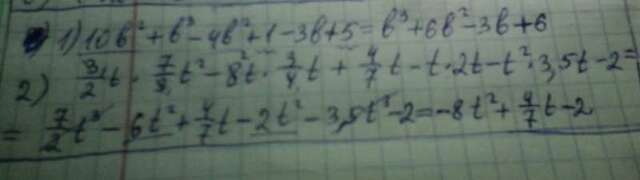 1) 10b² + b³ - 4b² + 1 - 3b + 5 = b³ + 6b² - 3b + 6
2) 3/2 t · 7/3 t² - 8² t · 3/4 t + 4/7 t - t · 2t - t² · 3,5t - 2 =
= 7/2 t³ - 6t² + 4/7 t - 2t² - 3,5t³ - 2 = -8t² + 4/7 t - 2